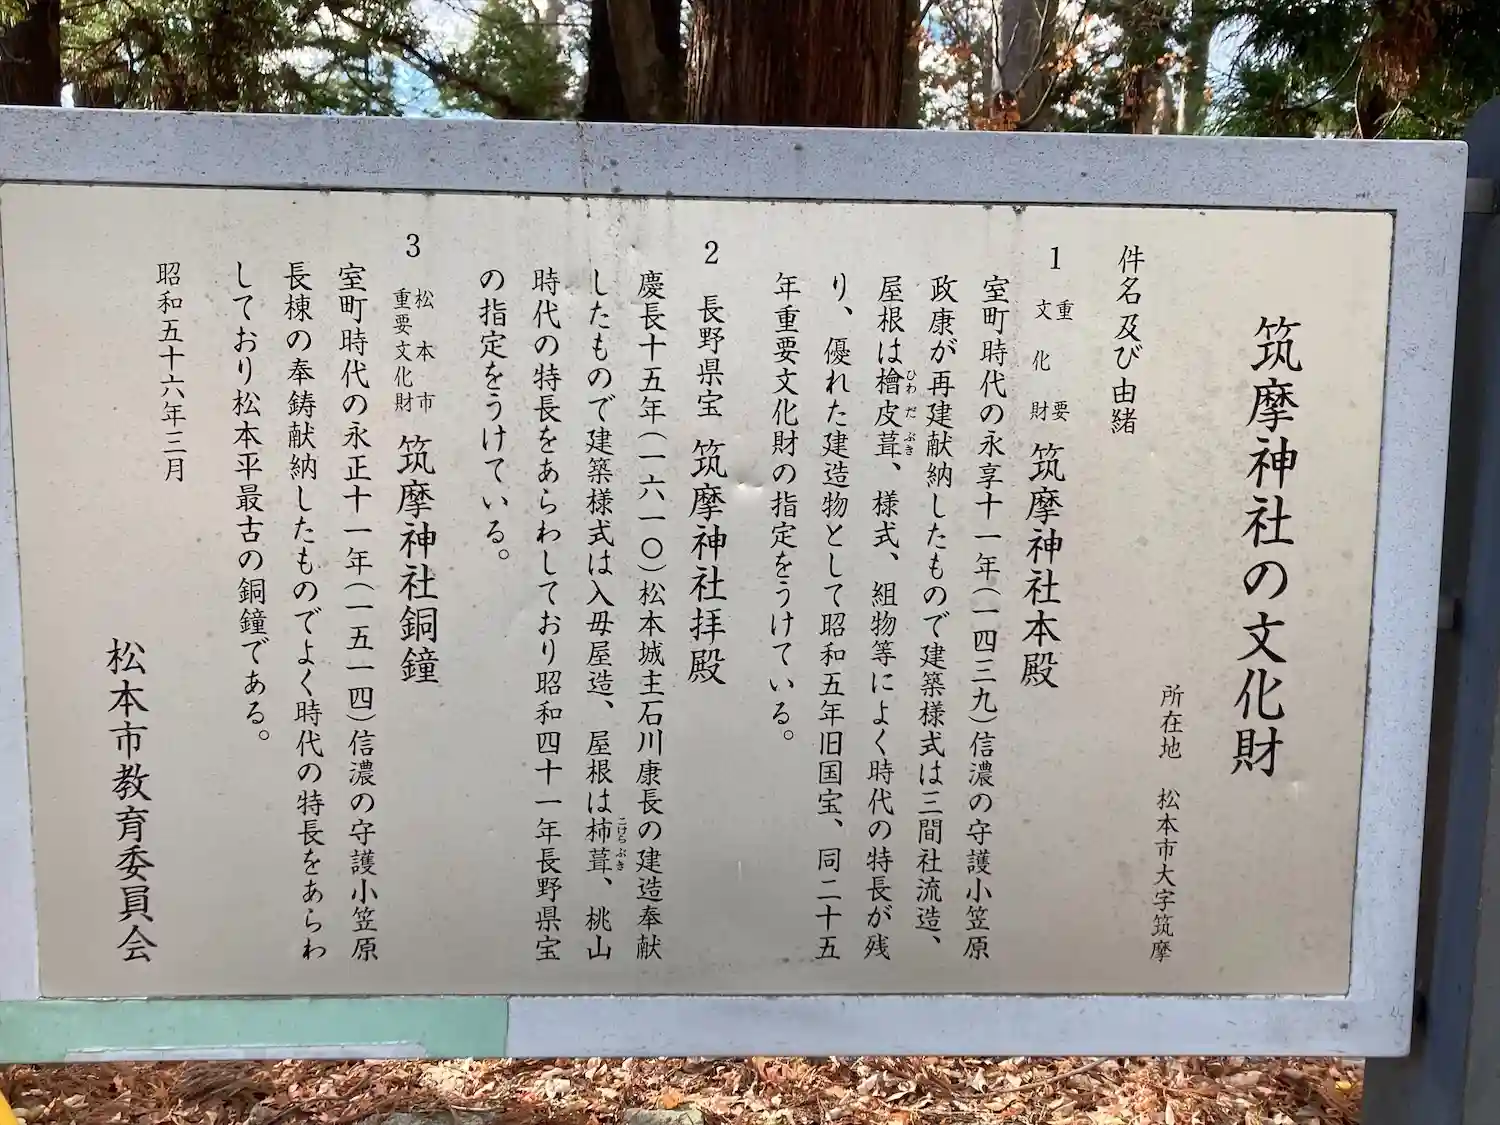 筑摩神社の文化財
所在地　松本市大字筑摩
件名及び由緒
1 重要文化財 筑摩神社本殿
室町時代の永享十一年（一四三九）信濃の守護小笠原
政康が再建献納したもので建築様式は三間社流造、
屋根は檜皮葺、様式、組物等によく時代の特長が残
ひわだぶき
り、優れた建造物として昭和五年旧国宝、同二十五
年重要文化財の指定をうけている。
2 長野県宝 筑摩神社拝殿
慶長十五年（一六一〇）松本城主石川康長の建造奉献
したもので建築様式は入母屋造、屋根は柿葺、桃山
こけらぶき
時代の特長をあらわしており昭和四十一年長野県宝
の指定をうけている。
3 松本市重要文化財 筑摩神社銅鐘
室町時代の永正十一年（一五一四）信濃の守護小笠原
長棟の奉鋳献納したものでよく時代の特長をあらわ
しており松本平最古の銅鐘である。
昭和五十六年三月
松本市教育委員会